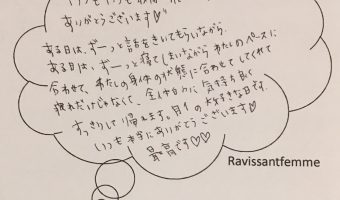 ありがとうございます♡"
ある日は、ずーっと話をきいてもらいながら、
ある日は、ずーっと寝てしまいながら わたしのペースに
合わせて、わたしの身体の状態に合わせてしてくれて
疲れだけじゃなくて、全体的に 気持ち良く
すっきりして帰れます。月1の大好きな日です。
いつも本当にありがとうございます♡
最高です♡♡
Ravissantfemme